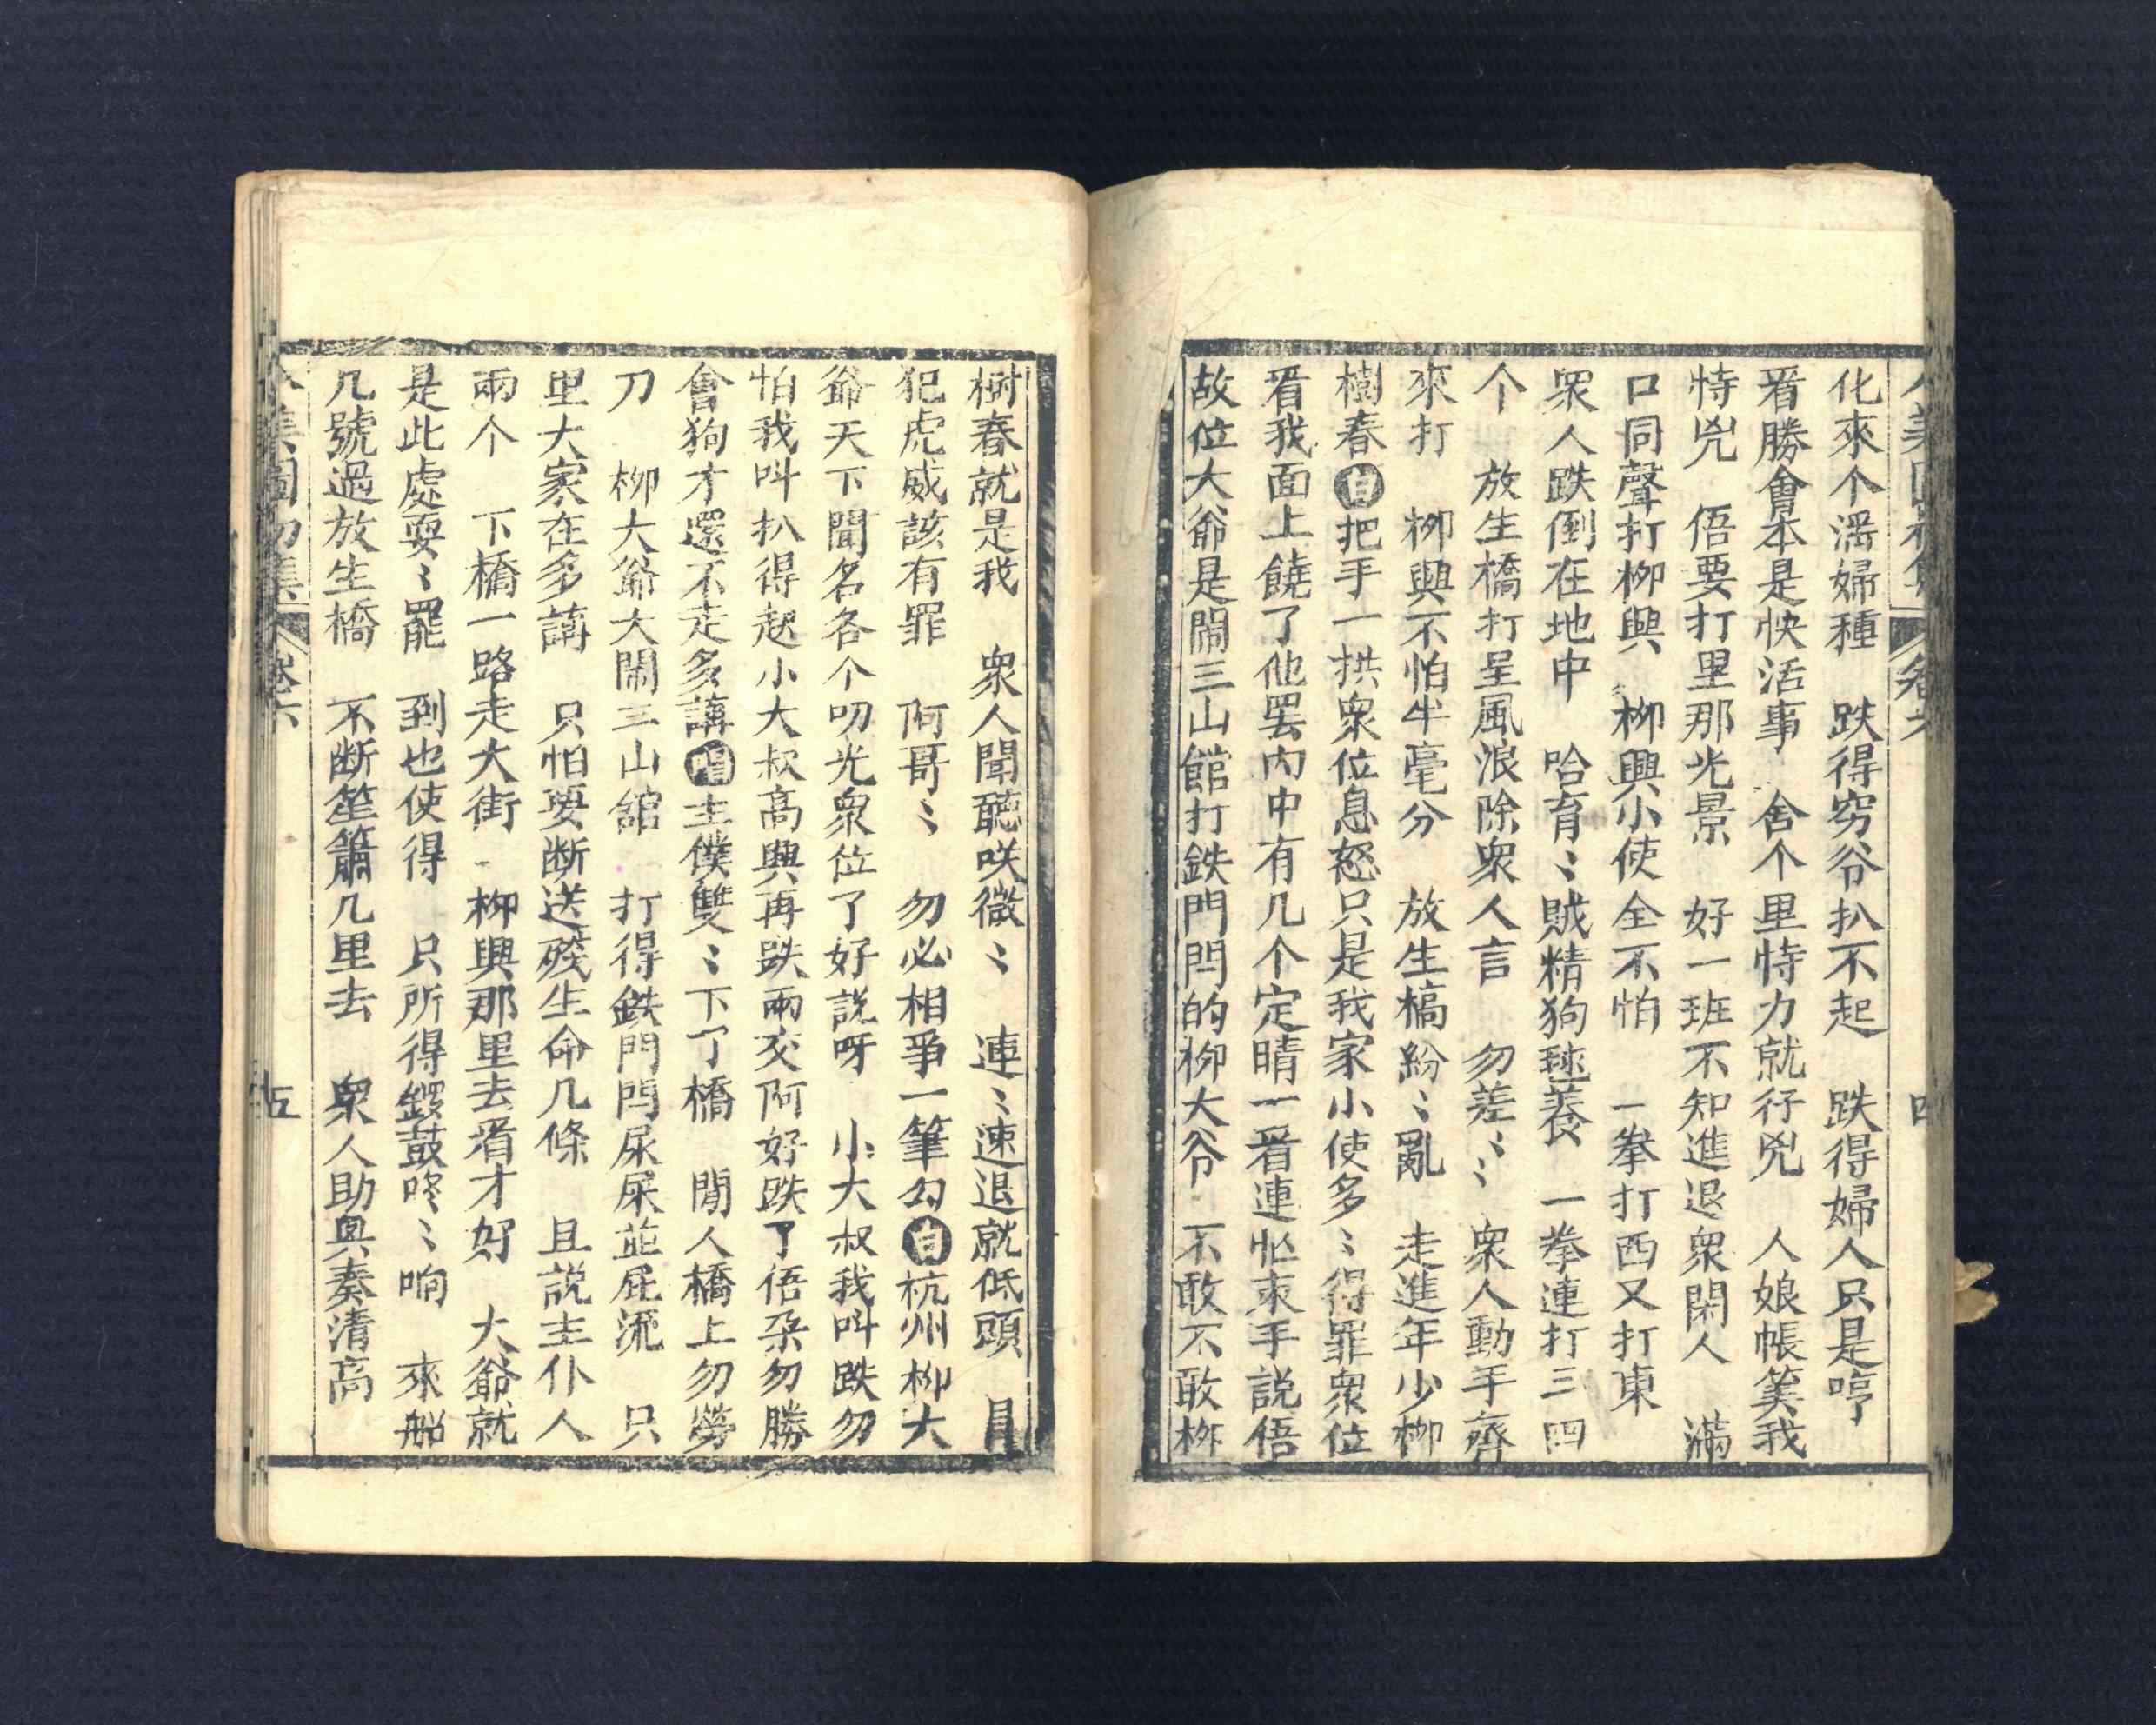 化來个滛婦種　跌得穷爷扒不起　跌得婦人只是哼
看勝會本是快活事　舍个里恃力就行兇　人娘帳筭我
恃兇　俉要打里那光景　好一班不知進退衆閑人　滿
口同聲打柳興　柳興小使全不怕　一拳打西又打東
衆人跌倒在地中　哈育〻賊精狗毬養　一拳連打三四
个　放生橋打呈風浪除衆人言　勿差〻〻衆人動手齊
來打　柳興不怕半毫分　放生槁紛〻亂　走進年少柳
樹春白把手一拱衆位息怒只是我家小使多〻得罪衆位
看我面上饒了他罢内中有几个定睛一看連忙束手説俉
故位大爺是閙三山館打鉄門閂的柳大爷　不敢不敢柳
樹春就是我　衆人聞聽咲微〻　連〻速退就低頭　冒
犯虎威該有罪　阿哥〻　勿必相爭一筆勾白杭州柳大
爺天下聞名各个叨光衆位了好説呀　小大叔我叫跌勿
怕我叫扒得起小大叔高興再跌兩交阿好跌了俉朶勿勝
會狗才還不走多講唱主僕雙〻下了橋　閒人橋上勿勞
刀　柳大爺大閙三山舘　打得鉄門閂尿屎並屁流　只
里大家在多講　只怕要断送殘生命几條　且説主仆人
兩个　下橋一路走大街　柳興那里去看才好　大爺就
是此處耍〻罷　到也使得　只所得鑼鼓咚〻响　來船
几號過放生橋　不断笙簫几里去　衆人助興奏清高
卷六
五